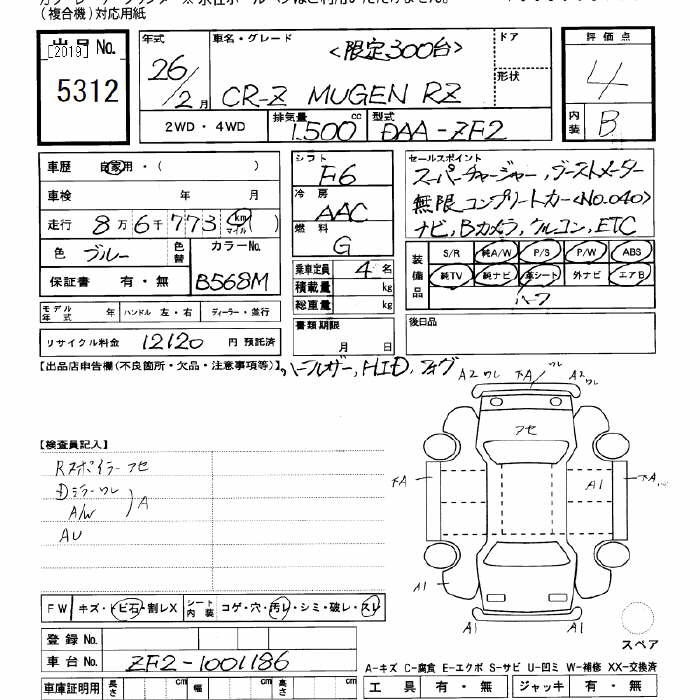 (複合機)対応用紙
出品No.
[2019]
5312
年式
26/2月
車名・グレード
<限定300台>
CR-Z MUGEN RZ
ドア
形状
評価点
4
内装
B
2WD・4WD
排気量
1.500 cc
型式
DAA-ZF2
車歴
自家用・( )
車検 年 月
走行 8万6千773 km マイル ( )
色 ブルー
色替
カラーNo.
B568M
保証書 有・無
シフト
F6
冷房
AAC
燃料
G
乗車定員 4 名
積載量 kg
総重量 kg
セールスポイント
スーパーチャージャー,ブーストメーター
無限コンプリートカー<No.040>
ナビ,Bカメラ,クルコン,ETC
装備品
S/R 純A/W P/S P/W ABS
純TV 純ナビ 革シート 外ナビ エアB
ハーフ
モデル年式 年
ハンドル 左・右
ディーラー・並行
リサイクル料金 12120 円 預託済
書類期限
月 日
後日品
【出品店申告欄(不良箇所・欠品・注意事項等)】
ハーフレザー,HID,フォグ
【検査員記入】
Rスポイラーアセ
DミラーワレA
A/W
AU
A2ワレ 下A ワレ A2ワレ
アセ
下A A1 下A
A1 A1
A1 A1
スペア
FW キズ・トビ石・割レX
シート内装 コゲ・穴・汚レ・シミ・破レ・スレ
登録No.
車台No. ZF2-1001186
A-キズ C-腐食 E-エクボ S-サビ U-凹ミ W-補修 XX-交換済
車庫証明用 長さ cm 幅 cm 高さ cm
工具 有・無 ジャッキ 有・無